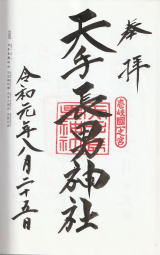 奉拝
壱岐國一之宮
天手長男神社
令和元年八月二十五日